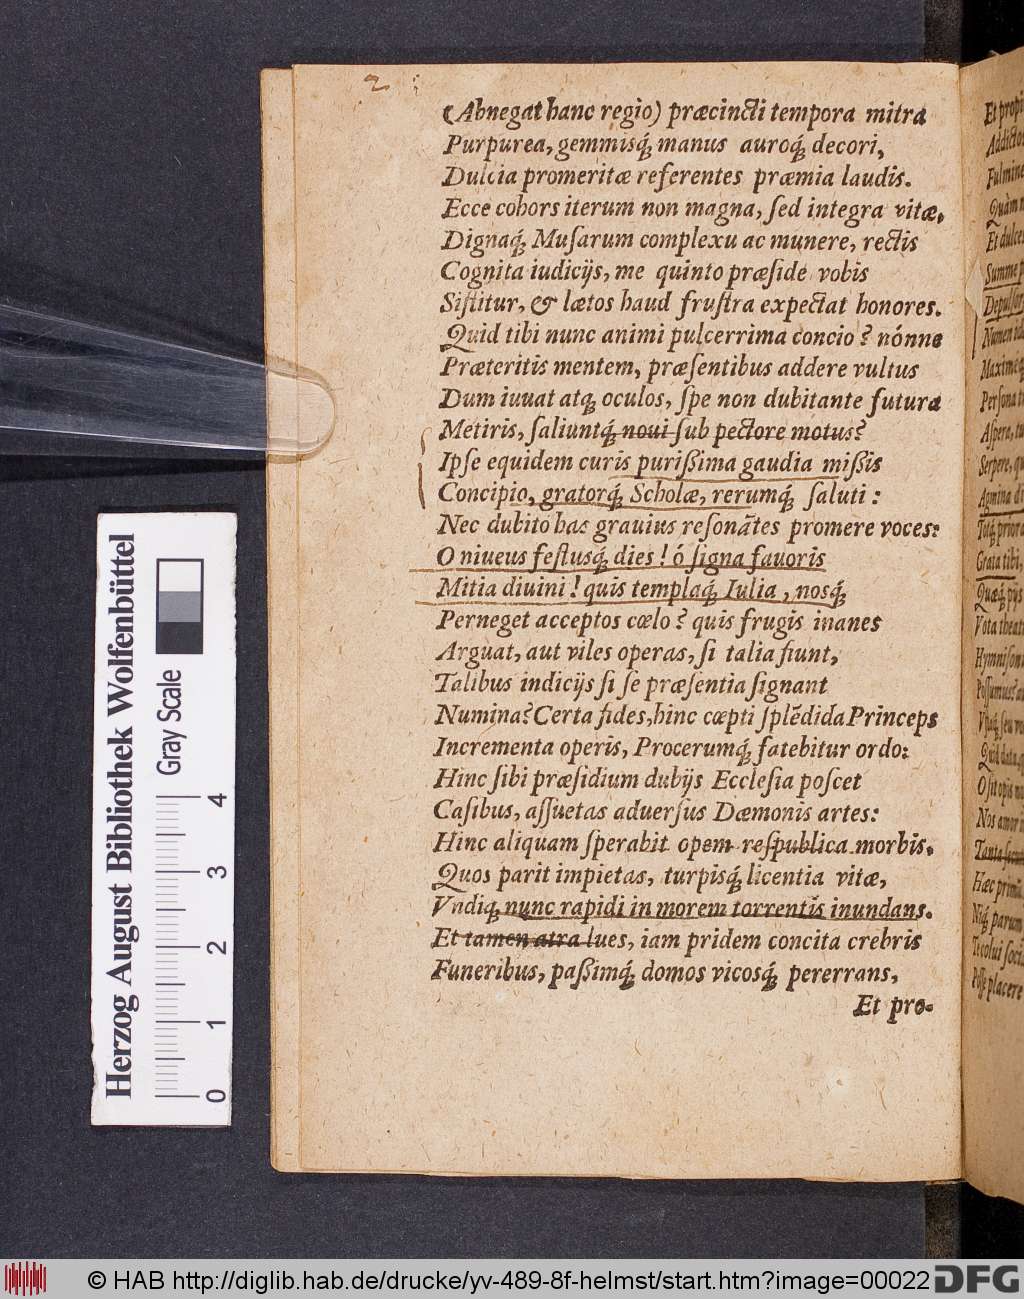 2
(Abnegat hanc regio) præcincti tempora mitra
Purpurea, gemmisq́; manus auroq́; decori,
Dulcia promeritæ referentes præmia laudis.
Ecce cohors iterum non magna, ſed integra vitæ,
Dignaq́; Muſarum complexu ac munere, rectis
Cognita iudicijs, me quinto præſide vobis
Siſtitur, & lætos haud fruſtra expectat honores.
Quid tibi nunc animi pulcerrima concio? nónne
Præteritis mentem, præſentibus addere vultus
Dum iuuat atq; oculos, ſpe non dubitante futura
Metiris, ſaliuntq́; noui ſub pectore motus?
Ipſe equidem curis purißima gaudia mißis
Concipio, gratorq́; Scholæ, rerumq́; ſaluti:
Nec dubito has grauius reſonãtes promere voces:
O niueus feſtusq́; dies! ó ſigna fauoris
Mitia diuini! quis templaq́; Iulia, nosq́;
Perneget acceptos cœlo? quis frugis inanes
Arguat, aut viles operas, ſi talia fiunt,
Talibus indicijs ſi ſe præſentia ſignant
Numina? Certa fides, hinc cœpti ſplẽdida Princeps
Incrementa operis, Procerumq́; fatebitur ordo:
Hinc ſibi præſidium dubijs Eccleſia poſcet
Caſibus, aſſuetas aduerſus Dæmonis artes:
Hinc aliquam ſperabit opem reſpublica morbis,
Quos parit impietas, turpisq́; licentia vitæ,
Vndiq; nunc rapidi in morem torrentis inundans.
Et tamen atra lues, iam pridem concita crebris
Funeribus, paßimq́; domos vicosq́; pererrans,
Et pro-
Et propi
Addicto
Fulmine
Quàm
Et dulce
Summe p
Depulſor
Numen
Maxime
Perſona
Aſpera, tu
Serpere, qu
Agmina di
Tuq; prior
Grata tibi,
Quæq; pijs
Vota theat
Hymniſon
Poſſumus? a
Quid data, q
O ſit opis
Nos amor
Tanta
Hæc prima
Niq; parum
Te colui ſoci
Poſſe placere
Herzog August Bibliothek Wolfenbüttel
Gray Scale
0 1 2 3 4
© HAB http://diglib.hab.de/drucke/yv-489-8f-helmst/start.htm?image=00022
DFG